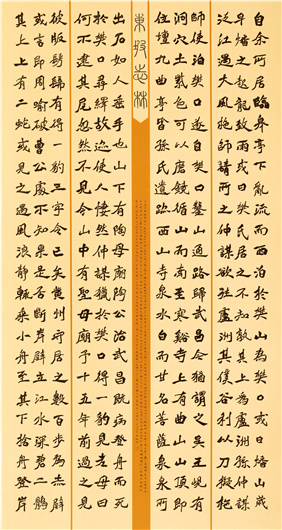 自余所居臨皋亭下亂流而西泊於樊山為樊口或曰燔山歲
旱燔之起龍致雨或曰樊氏居之不知孰是其上為盧洲孫仲謀
泛江遇大風柂師請所之仲謀欲往盧洲其僕谷利以刀擬柂
師使泊樊口遂自樊口鑿山通路歸武昌今猶謂之吳王峴有
洞穴土紫色可以磨鏡循山而南至寒谿寺上有曲山山頂即
位壇九曲亭皆孫氏遺跡西山寺泉水白而甘名菩薩泉泉所
東坡志林
出石如人垂手也山下有陶母廟陶公治武昌既病登舟而死
於樊口尋繹故迹使人悽然仲謀獵於樊口得一豹見老母曰
何不逮其尾忽然不見今山中有聖母廟予十五年前過之見
彼版髣髴有得一豹三字今亡矣黃州守居之數百步為赤壁
或言即周瑜破曹公處不知果是否斷岸壁立江水深碧二鶻
其上上有二蛇或見之遇風浪靜輒乘小舟至其下捨舟登岸